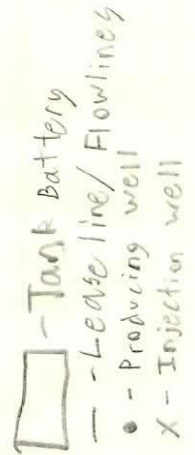 - Tank Battery
— - Lease line/Flowlines
• - Producing well
X - Injection well